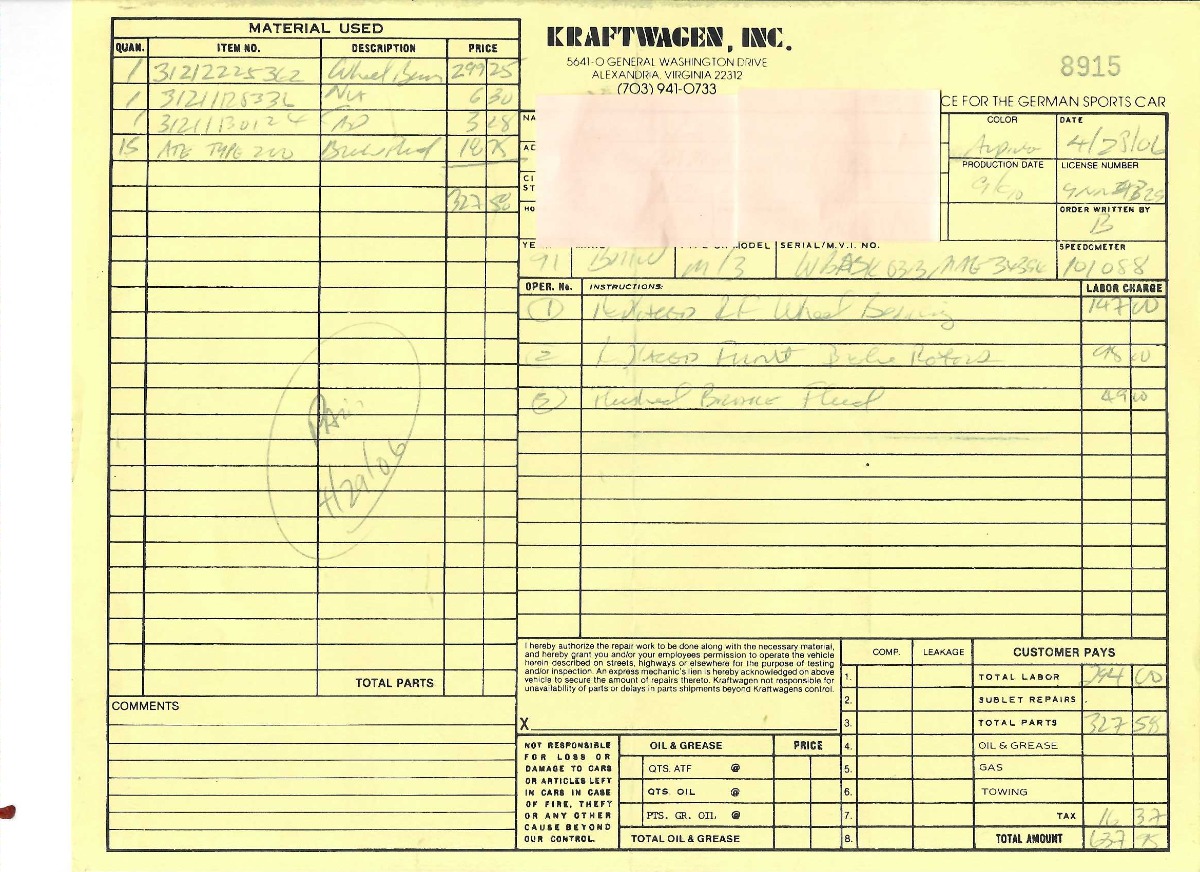 MATERIAL USED
QUAN. ITEM NO. DESCRIPTION PRICE
1 31212225362 Wheel 299 25
1 NUT 6 30
1 3 28
15 ATE TYPE 200 18 75
327 58
Paid
4/29/06
TOTAL PARTS
COMMENTS
KRAFTWAGEN, INC.
5641-O GENERAL WASHINGTON DRIVE
ALEXANDRIA, VIRGINIA 22312
(703) 941-0733
8915
CE FOR THE GERMAN SPORTS CAR
NA
COLOR DATE
4/28/06
AD
PRODUCTION DATE LICENSE NUMBER
9/90
CI
ST
ORDER WRITTEN BY
B
HO
YE MODEL SERIAL/M.V.I. NO. SPEEDOMETER
91 BMW M/3 101088
OPER. No. INSTRUCTIONS: LABOR CHARGE
1 Replaced RF Wheel Bearing 147 00
2 Replaced Front Brake Rotors 98 00
3 Flushed Brake Fluid 49 00
I hereby authorize the repair work to be done along with the necessary material,
and hereby grant you and/or your employees permission to operate the vehicle
herein described on streets, highways or elsewhere for the purpose of testing
and/or inspection. An express mechanic's lien is hereby acknowledged on above
vehicle to secure the amount of repairs thereto. Kraftwagen not responsible for
unavailability of parts or delays in parts shipments beyond Kraftwagens control.
X
NOT RESPONSIBLE
FOR LOSS OR
DAMAGE TO CARS
OR ARTICLES LEFT
IN CARS IN CASE
OF FIRE, THEFT
OR ANY OTHER
CAUSE BEYOND
OUR CONTROL.
OIL & GREASE PRICE
QTS. ATF @
QTS. OIL @
PTS. GR. OIL @
TOTAL OIL & GREASE
COMP. LEAKAGE CUSTOMER PAYS
1. TOTAL LABOR 294 00
2. SUBLET REPAIRS
3. TOTAL PARTS 327 58
4. OIL & GREASE
5. GAS
6. TOWING
7. TAX 16 37
8. TOTAL AMOUNT 637 95